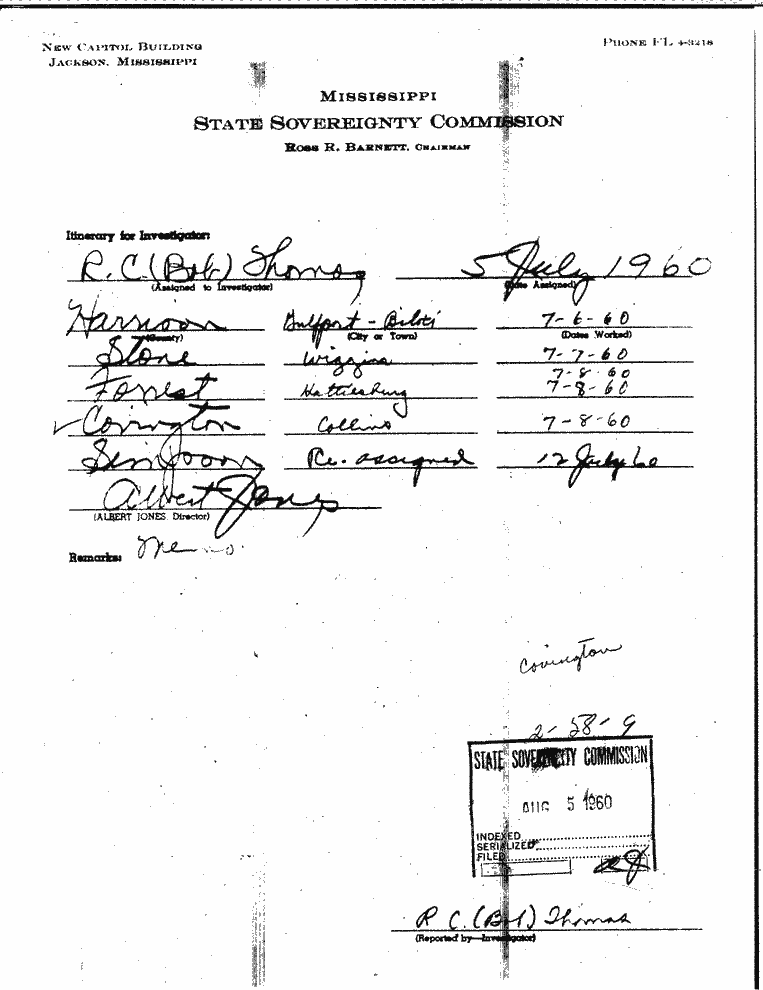 NEW CAPITOL BUILDING
JACKSON, MISSISSIPPI
PHONE FL 4-3218
MISSISSIPPI
STATE SOVEREIGNTY COMMISSION
ROSS R. BARNETT, CHAIRMAN
Itinerary for Investigator:
R. C. (Bob) Thomas 5 July 1960
(Assigned to Investigator) (Date Assigned)
Harrison Gulfport - Biloxi 7-6-60
(County) (City or Town) (Dates Worked)
Stone Wiggins 7-7-60
7-8-60
Forest Hattiesburg 7-8-60
✓ Covington Collins 7-8-60
Simpson Re-assigned 12 July 60
Albert Jones
(ALBERT JONES, Director)
Remarks: Memo.
Covington
2-58-9
STATE SOVEREIGNTY COMMISSION
AUG 5 1960
INDEXED
SERIALIZED
FILED
aJ
R C. (Bob) Thomas
(Reported by—Investigator)